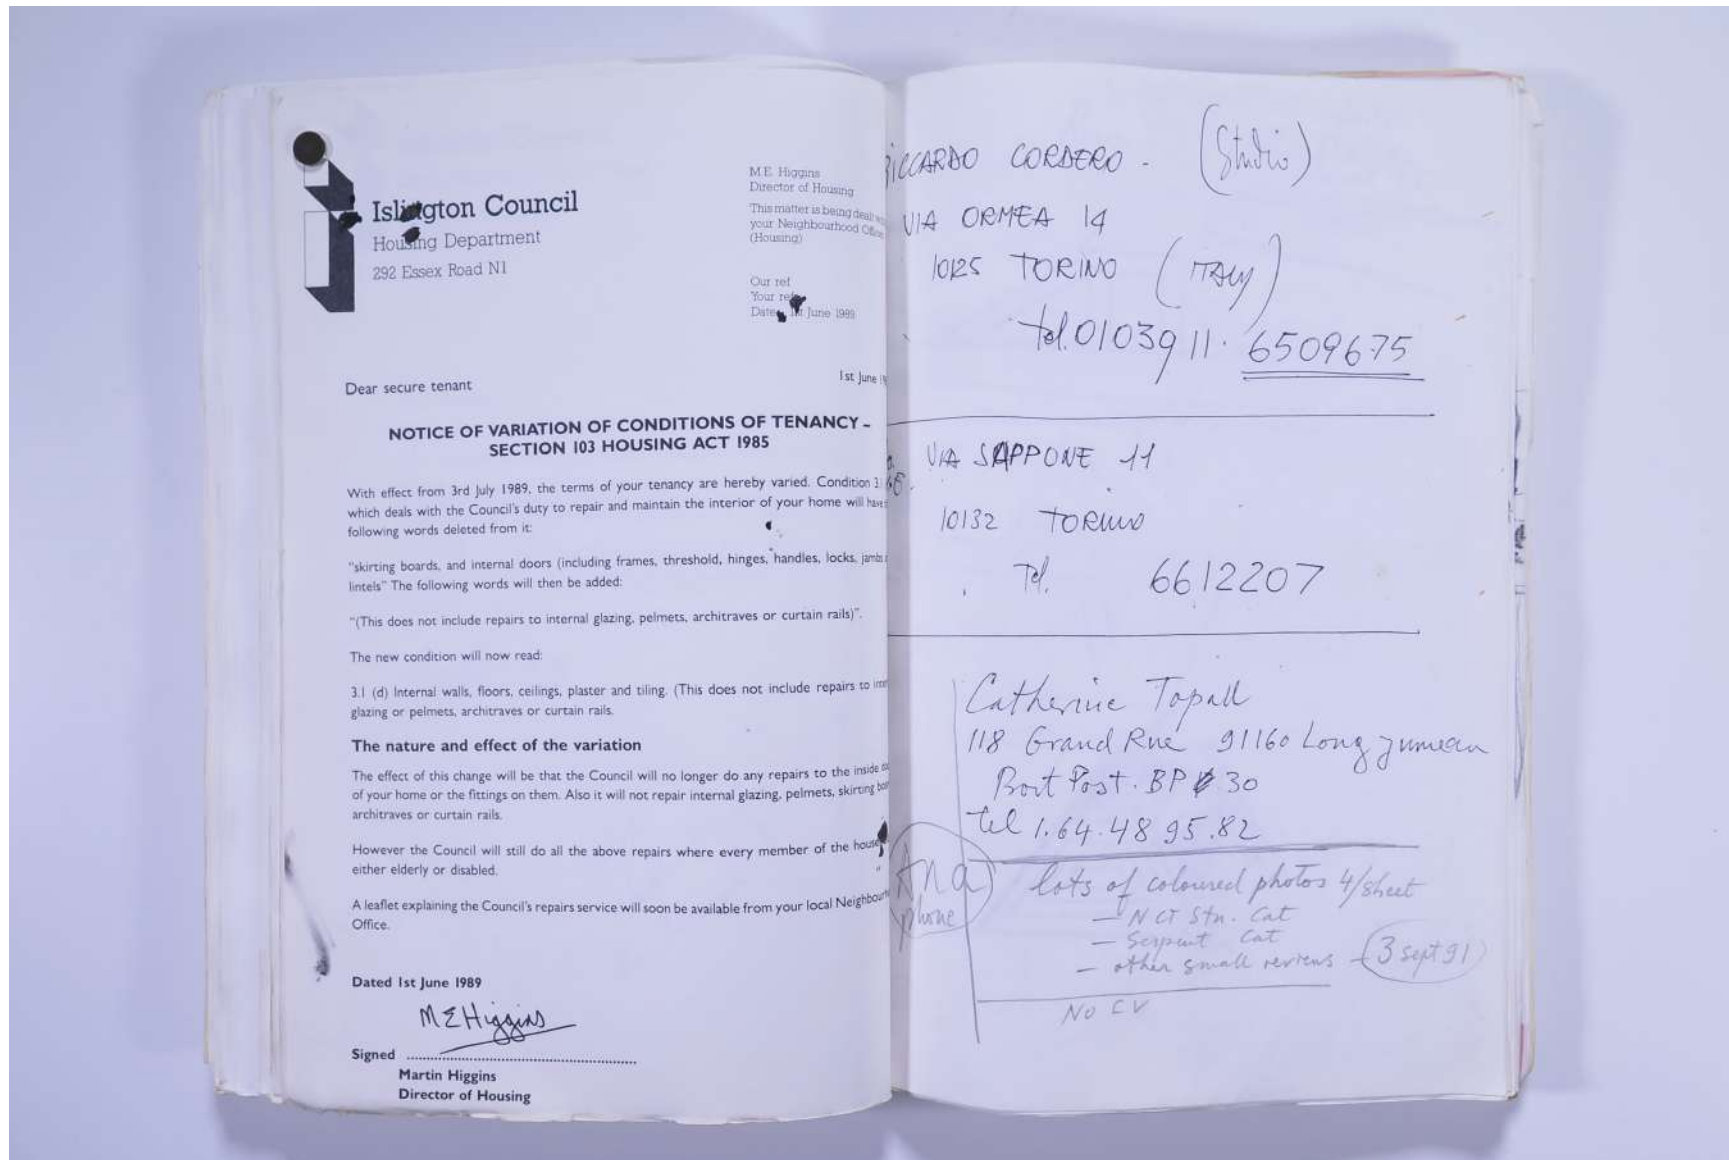 Islington Council
Housing Department
292 Essex Road N1
M.E. Higgins
Director of Housing
This matter is being dealt
your Neighbourhood
(Housing)
Our ref
Your ref
Date 1st June 1989
1st June
Dear secure tenant
NOTICE OF VARIATION OF CONDITIONS OF TENANCY –
SECTION 103 HOUSING ACT 1985
With effect from 3rd July 1989, the terms of your tenancy are hereby varied. Condition 3.
which deals with the Council's duty to repair and maintain the interior of your home will have
following words deleted from it:
"skirting boards, and internal doors (including frames, threshold, hinges, handles, locks, jambs
lintels" The following words will then be added:
"(This does not include repairs to internal glazing, pelmets, architraves or curtain rails)".
The new condition will now read:
3.1 (d) Internal walls, floors, ceilings, plaster and tiling. (This does not include repairs to
glazing or pelmets, architraves or curtain rails.
The nature and effect of the variation
The effect of this change will be that the Council will no longer do any repairs to the inside
of your home or the fittings on them. Also it will not repair internal glazing, pelmets, skirting
architraves or curtain rails.
However the Council will still do all the above repairs where every member of the
either elderly or disabled.
A leaflet explaining the Council's repairs service will soon be available from your local
Office.
Dated 1st June 1989
M E Higgins
Signed
Martin Higgins
Director of Housing
RICCARDO CORDERO - (Studio)
VIA ORMEA 14
10125 TORINO (ITALY)
tel. 0103911. 6509675
VIA SAPPONE 11
10132 TORINO
Tel. 6612207
Catherine Topall
118 Grand Rue 91160 Longjumeau
Boit Post. BP 30
tel 1.64.48 95.82
Ana
phone
lots of coloured photos 4/sheet
– N CT Stn. Cat
– Serpent Cat
– other small reviews – (3 sept 91)
NO CV